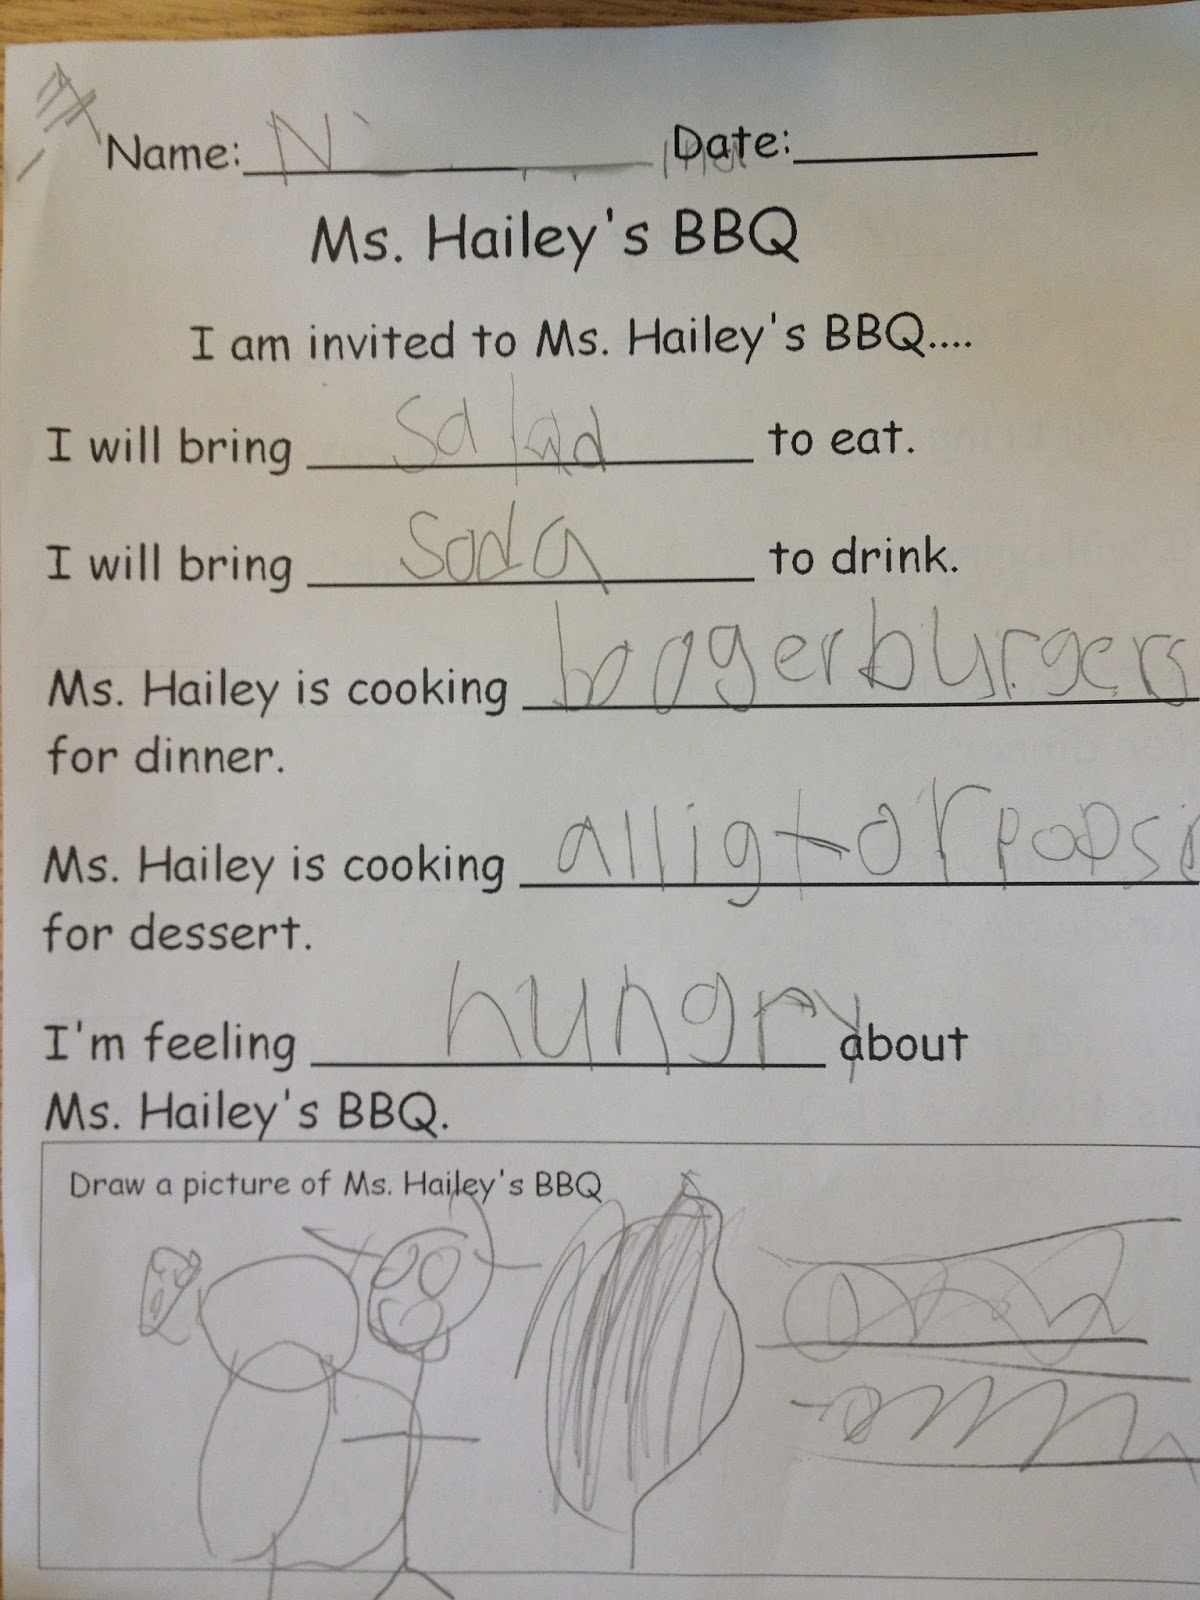 Name: N Date:
Ms. Hailey's BBQ
I am invited to Ms. Hailey's BBQ....
I will bring salad to eat.
I will bring soda to drink.
Ms. Hailey is cooking boogerburgers
for dinner.
Ms. Hailey is cooking alligtorpopsi
for dessert.
I'm feeling hungry about
Ms. Hailey's BBQ.
Draw a picture of Ms. Hailey's BBQ